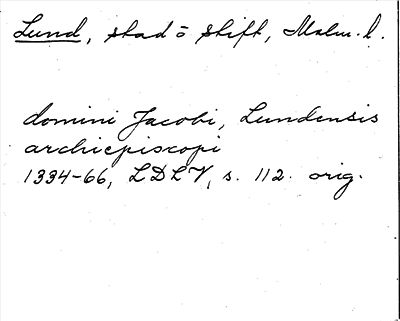 Lund, stad o stift, Malm. l.
domini Jacobi, Lundensis
archiepiscopi
1334-66, LDLV, s. 112. orig.